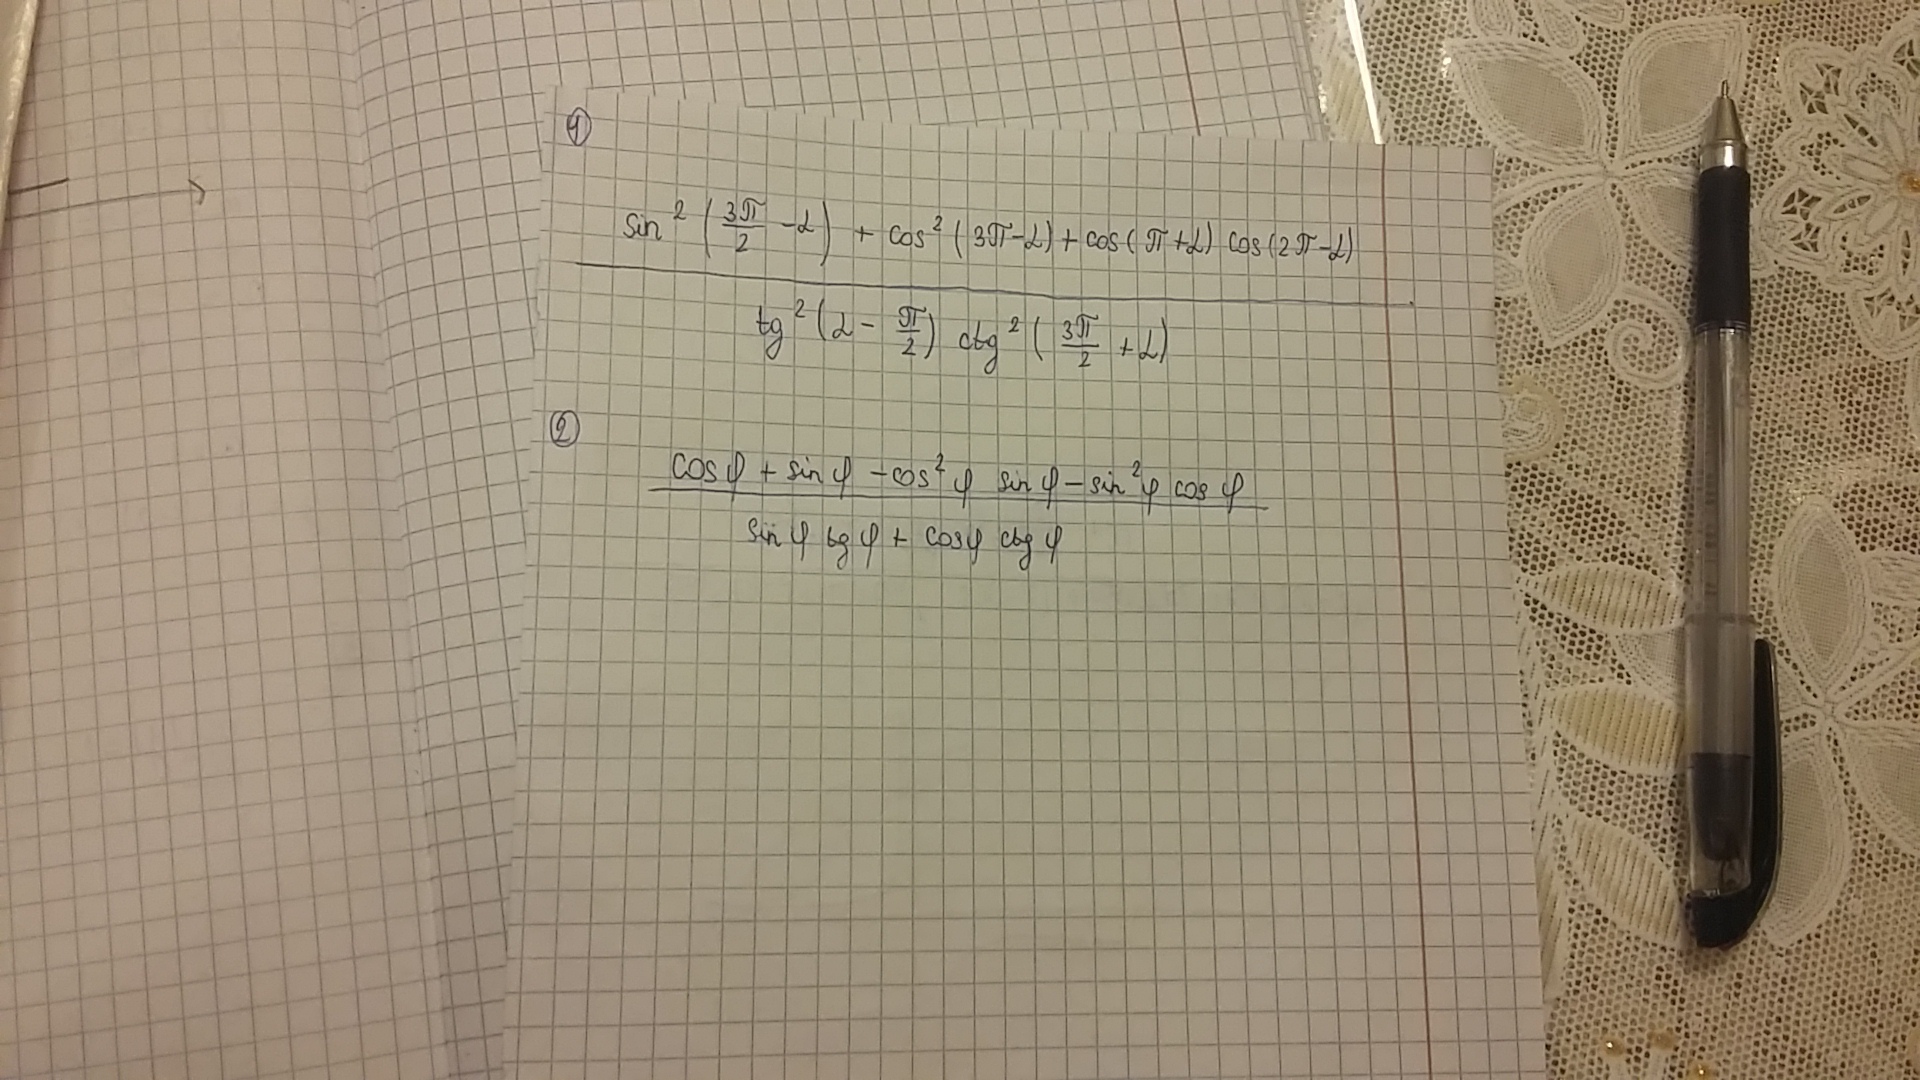 1
sin² (3π/2 - α) + cos² (3π-α) + cos(π+α) cos(2π-α)
tg² (α - π/2) ctg² (3π/2 + α)
2
cosφ + sinφ - cos²φ sinφ - sin²φ cosφ
sinφ tgφ + cosφ ctgφ